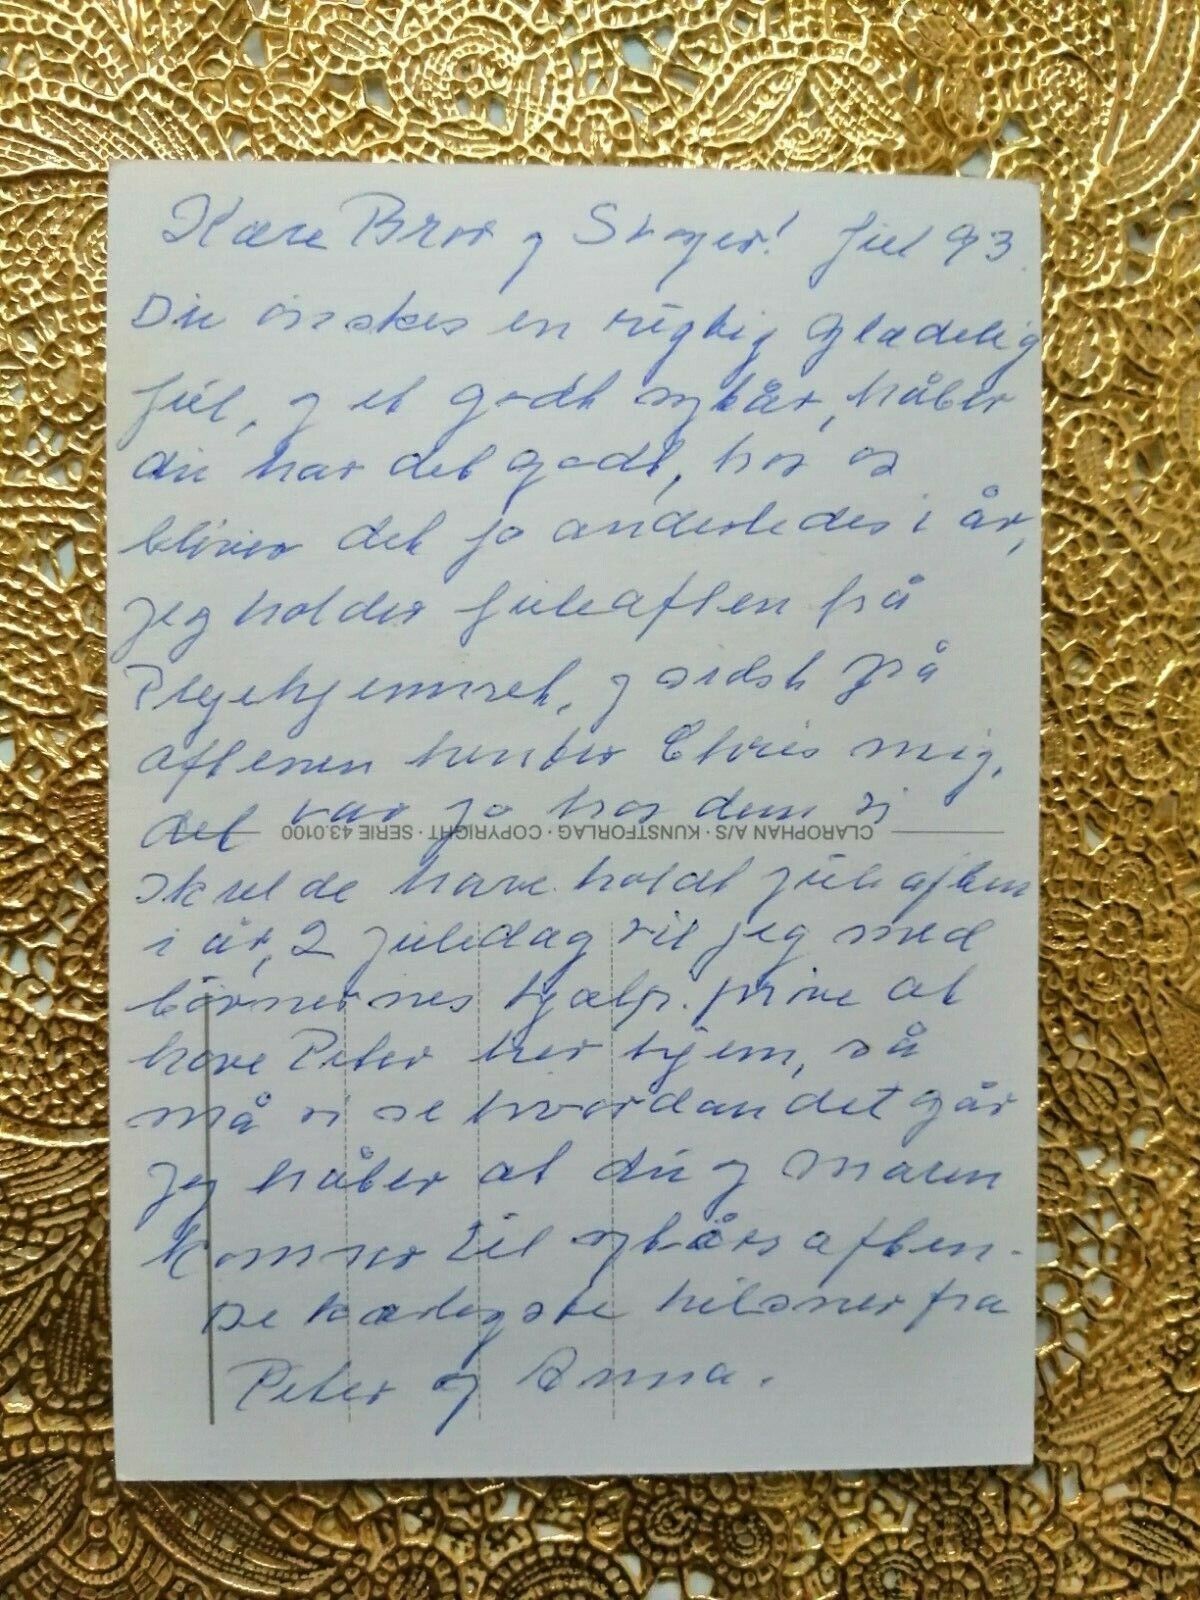 Kære Bror og Svoger! Jul 93.
Du ønskes en rigtig glædelig
jul, og et godt nytår, håber
du har det godt, hos os
bliver det jo anderledes i år,
jeg holder juleaften på
Plejehjemmet, og sidst på
aftenen henter Chris mig,
det var jo hos dem vi
CLAROPHAN A/S · KUNSTFORLAG · COPYRIGHT · SERIE 43.0100
skulde have holdt juleaften
i år, 2 juledag vil jeg med
børnernes hjælp prøve at
have Peter her hjem, så
må vi se hvordan det går
Jeg håber at du og Maren
kommer til nytårsaften.
De kærligste hilsner fra
Peter og Anna.